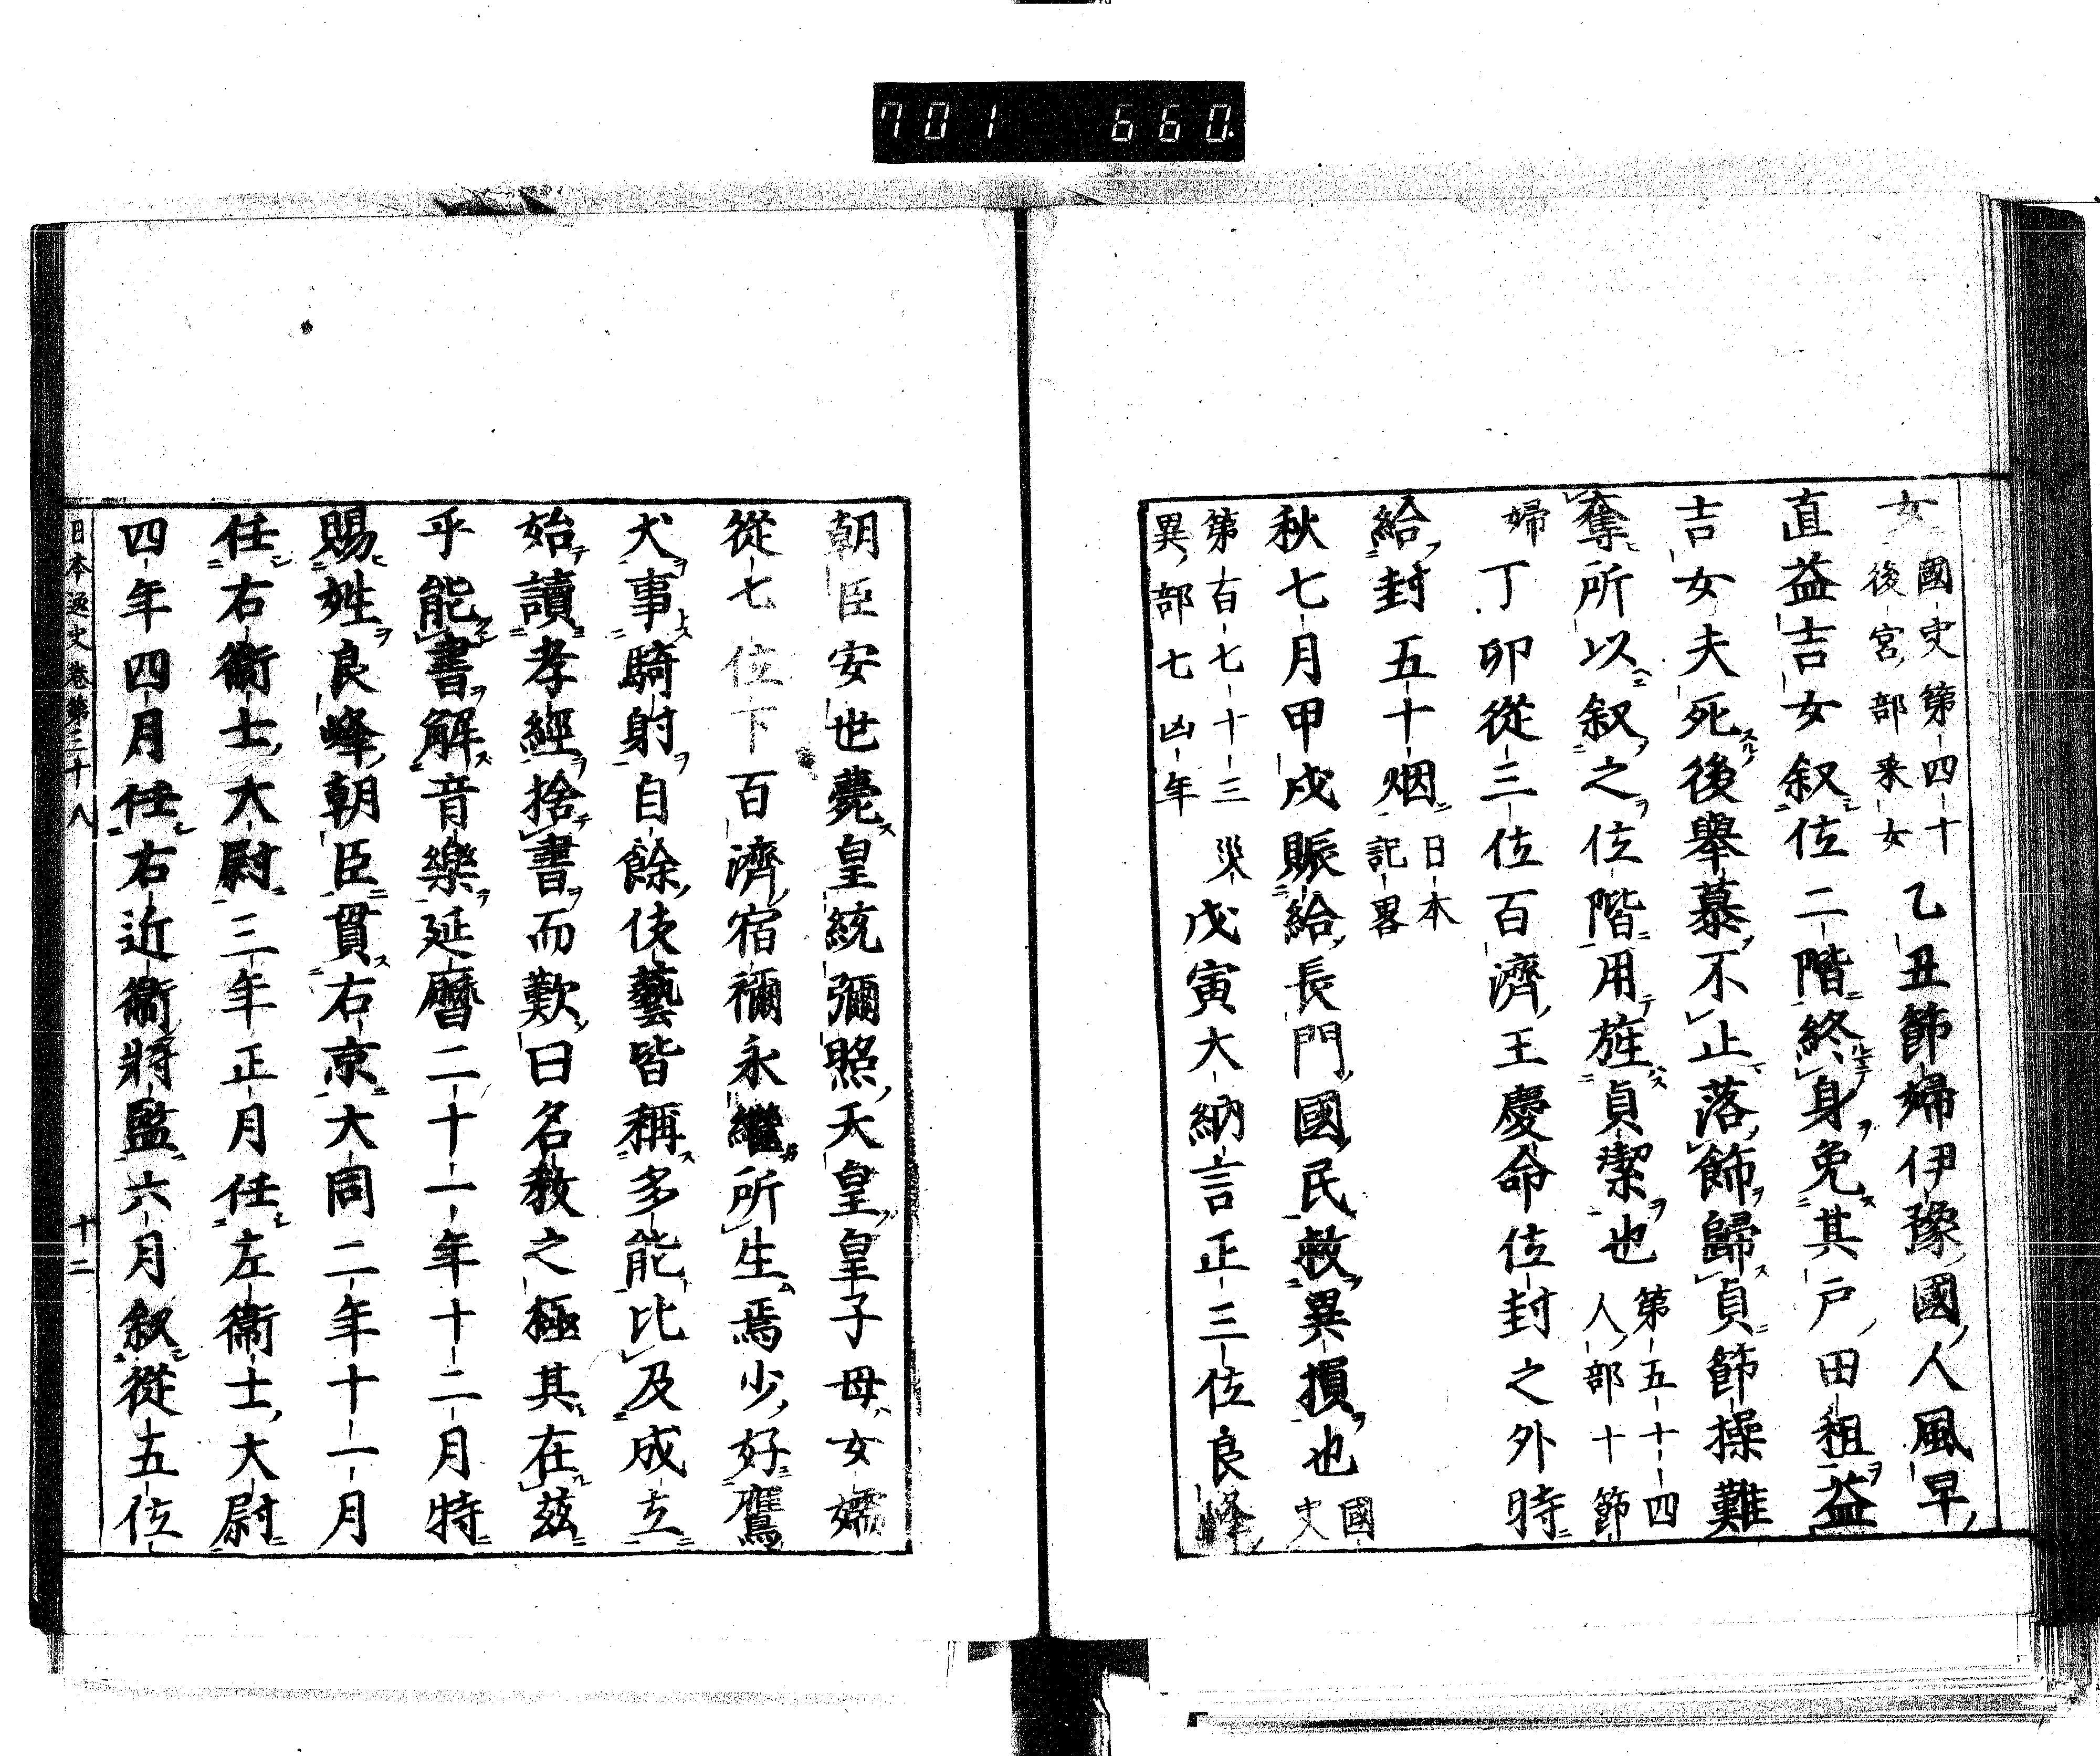 701 660.
女 國史第四十後宮部釆女 乙丑節婦伊豫國人風早
直益吉女叙位二階終身免其戸田租益
吉女夫死後舉慕不止落餝歸貞節操難
奪所以叙之位階用旌貞潔也 第五十四人部十節
婦 丁卯從三位百濟王慶命位封之外時
給封五十烟 日本記畧
秋七月甲戌賑給長門國民救異損也 國史
第百七十三災異部七凶年 戊寅大納言正三位良峰
朝臣安世薨皇統彌照天皇皇子母女嬬
從七位下百濟宿禰永繼所生焉少好鷹
犬事騎射自餘伎藝皆稱多能比及成立
始讀孝經捨書而歎曰名教之極其在茲
乎能書解音樂延曆二十一年十二月特
賜姓良峰朝臣貫右京大同二年十一月
任右衞士大尉三年正月任左衞士大尉
四年四月任右近衞將監六月叙從五位
日本逸史卷第三十八 十二